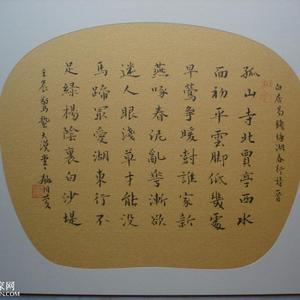 白居易錢塘湖春行詩
孤山寺北賈亭西水
面初平雲腳低幾處
早鶯爭暖樹誰家新
燕啄春泥亂花漸欲
迷人眼淺草才能沒
馬蹄最愛湖東行不
足綠楊陰裏白沙堤
壬辰
家网